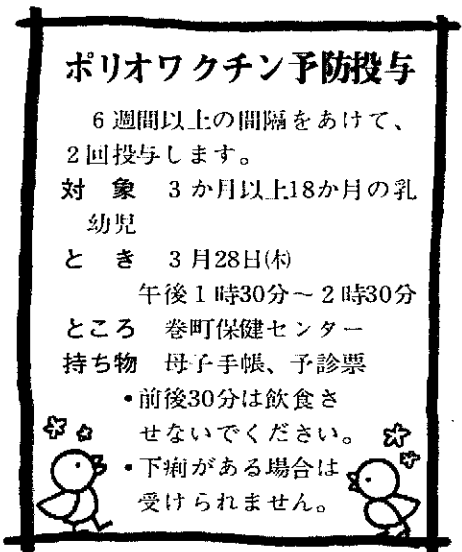 ポリオワクチン予防投与
6週間以上の間隔をあけて、
2回投与します。
対　象　3か月以上18か月の乳
幼児
と　き　3月28日(木)
午後1時30分～2時30分
ところ　巻町保健センター
持ち物　母子手帳、予診票
•前後30分は飲食さ
せないでください。
•下痢がある場合は
受けられません。